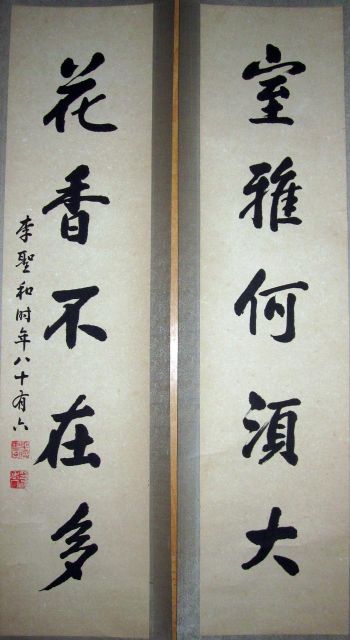 室雅何須大
花香不在多
李聖和时年八十有六